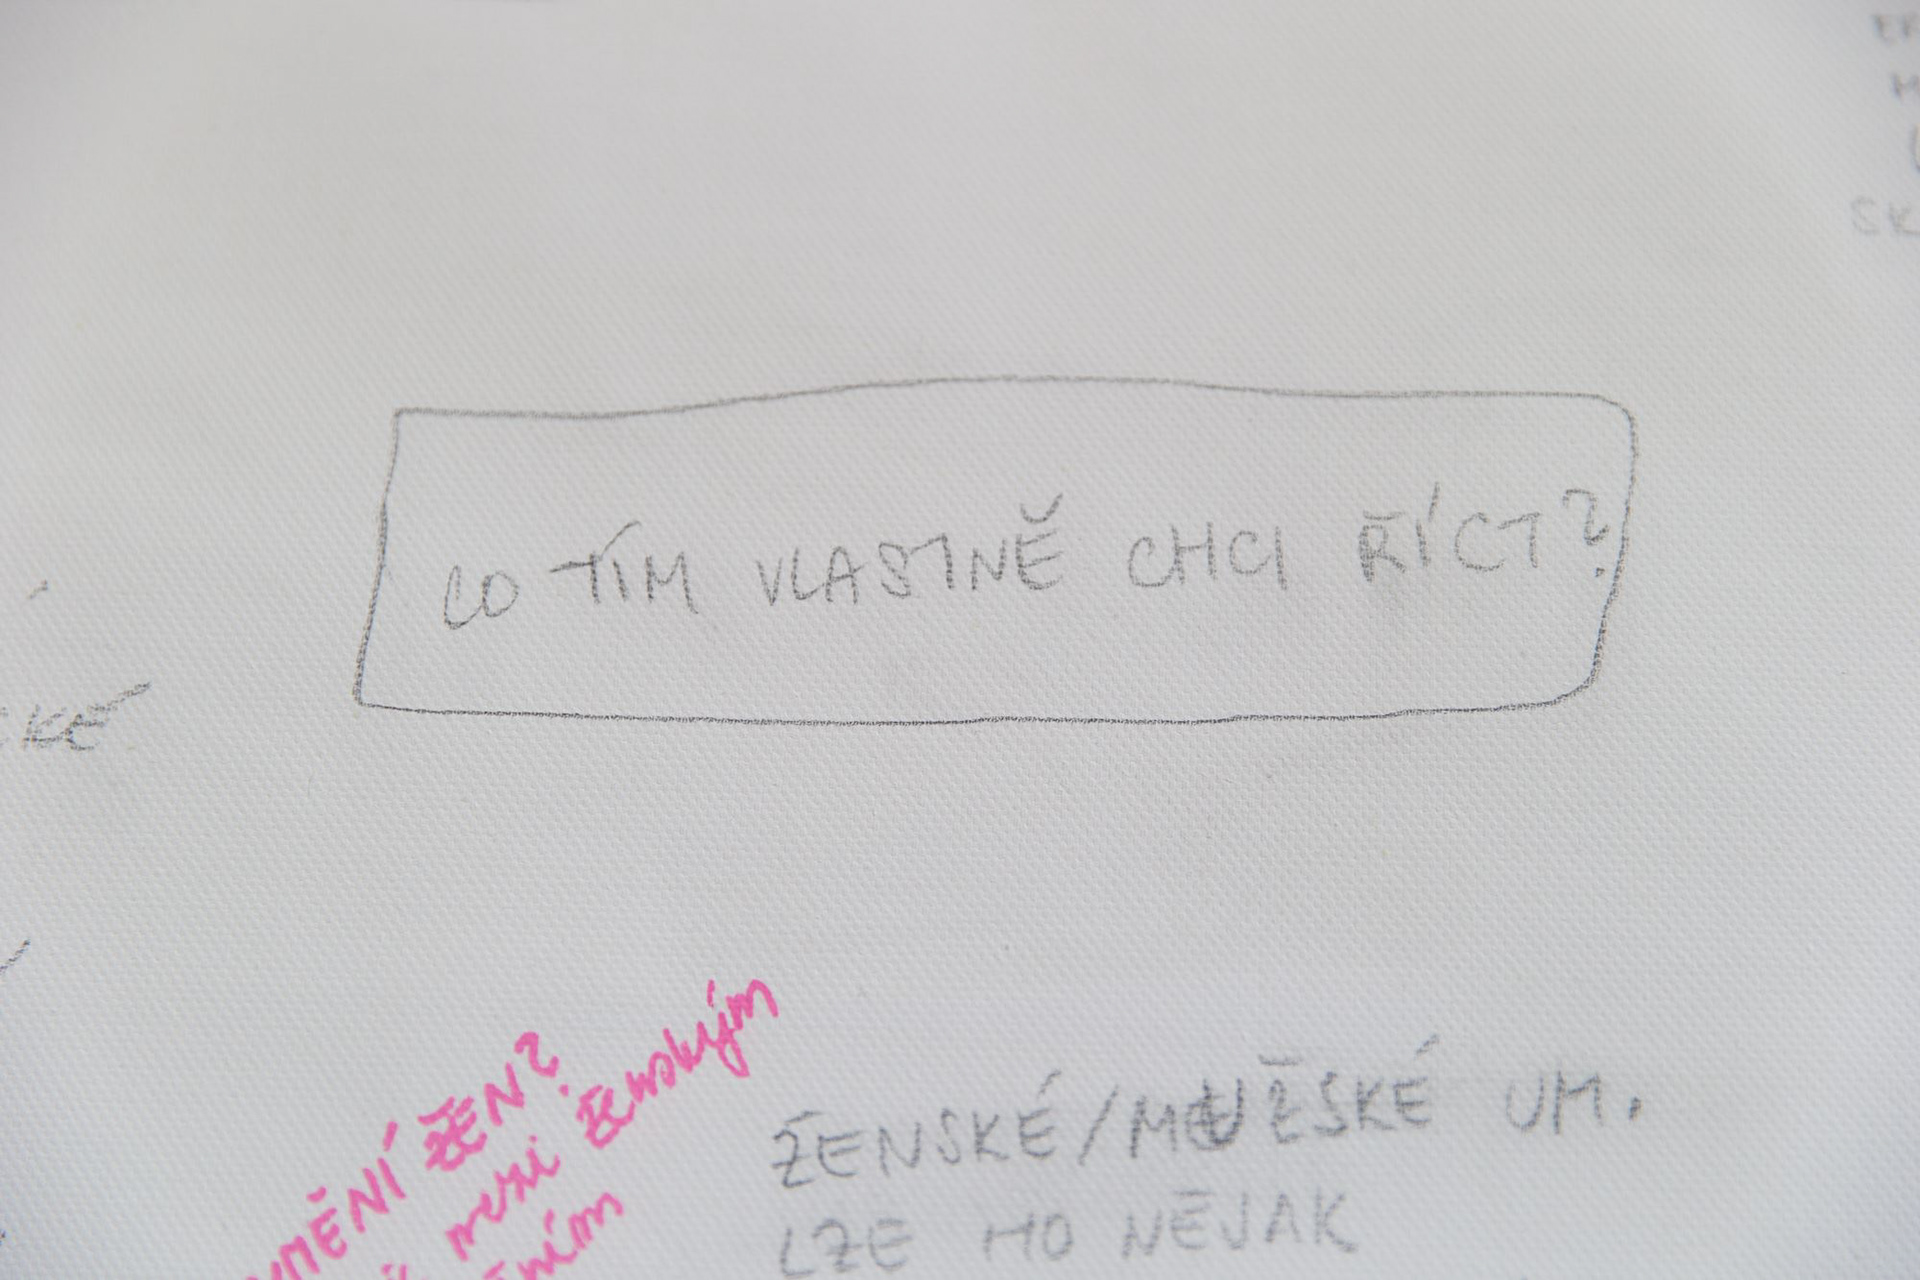 CO TÍM VLASTNĚ CHCI ŘÍCT?
UMĚNÍ ŽEN?
mezi ženským
ŽENSKÉ/MUŽSKÉ UM.
LZE HO NĚJAK